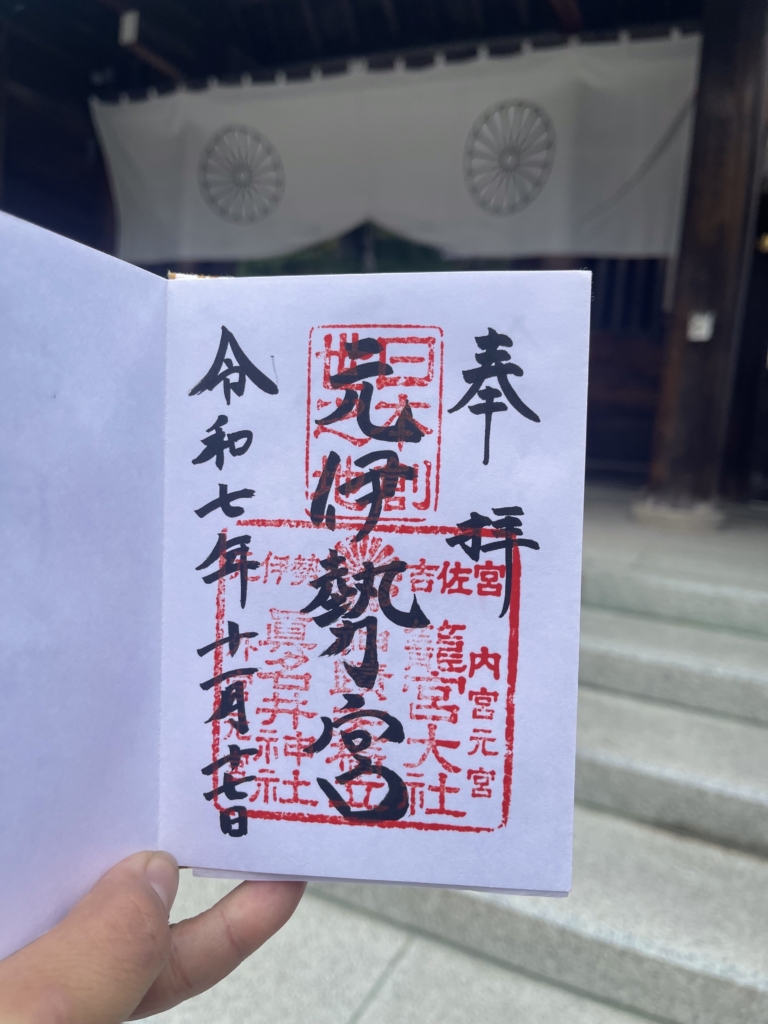 奉拝
日本創
世之地
元伊勢宮
元伊勢
吉佐宮
内宮元宮
籠宮大社
眞名井神社
令和七年十一月十七日